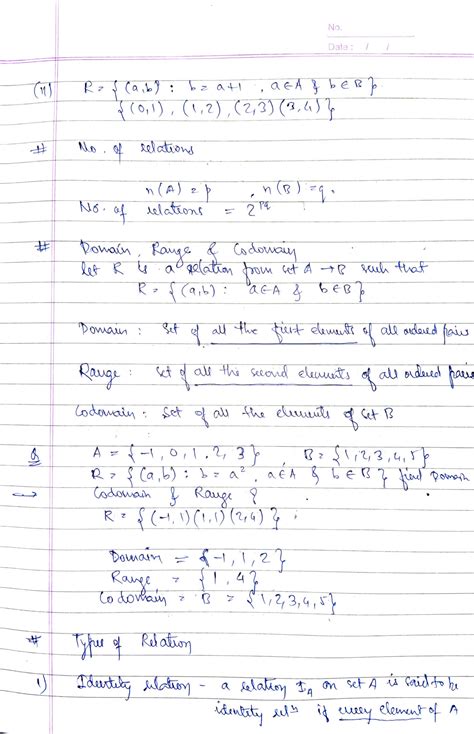 No.
Date: / /
(ii) R = { (a,b) : b = a+1 , a∈A & b∈B }
{ (0,1) , (1,2) , (2,3) (3,4) }
# No. of relations
n(A) = p , n(B) = q .
No. of relations = 2^pq
# Domain, Range & Codomain
let R is a relation from set A → B such that
R = { (a,b) : a∈A & b∈B }
Domain : Set of all the first elements of all ordered pairs
Range : Set of all the second elements of all ordered pairs
Codomain : Set of all the elements of Set B
Q A = { -1, 0, 1, 2, 3 } , B = { 1, 2, 3, 4, 5 }
R = { (a,b) : b = a² , a∈A & b∈B } find Domain
→ Codomain & Range ?
R = { (-1,1) (1,1) (2,4) } ;
Domain = { -1, 1, 2 }
Range = { 1, 4 }
Codomain = B = { 1, 2, 3, 4, 5 }
# Types of Relation
1) Identity relation - a relation I_A on set A is said to be
identity rel^n if every element of A